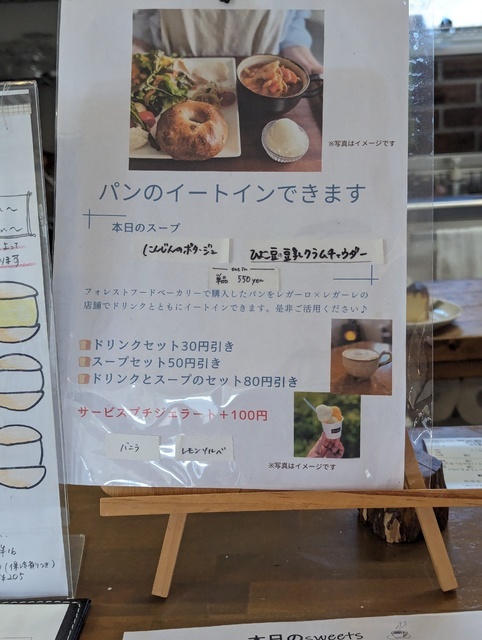 ※写真はイメージです
パンのイートインできます
本日のスープ
にんじんのポタージュ
ひよこ豆と豆乳クラムチャウダー
eat in
単品 550yen
フォレストフードベーカリーで購入したパンをレガーロ×レガーレの
店舗でドリンクとともにイートインできます。是非ご活用ください♪
ドリンクセット30円引き
スープセット50円引き
ドリンクとスープのセット80円引き
サービスプチジェラート+100円
バニラ
レモンソルベ
※写真はイメージです
¥205
本日のsweets